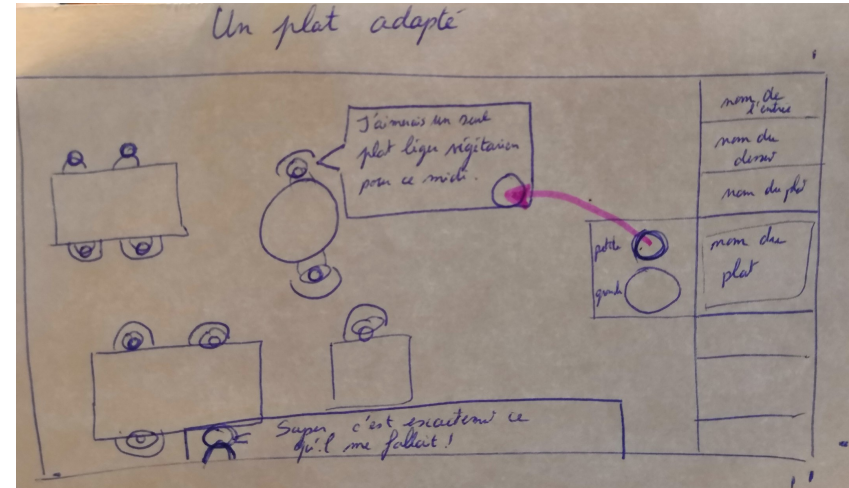 Un plat adapté
J'aimerais un seul
plat léger végétarien
pour ce midi.
nom de
l'entrée
nom du
dessert
nom du plat
petite
grande
nom du
plat
Super, c'est exactement ce
qu'il me fallait !